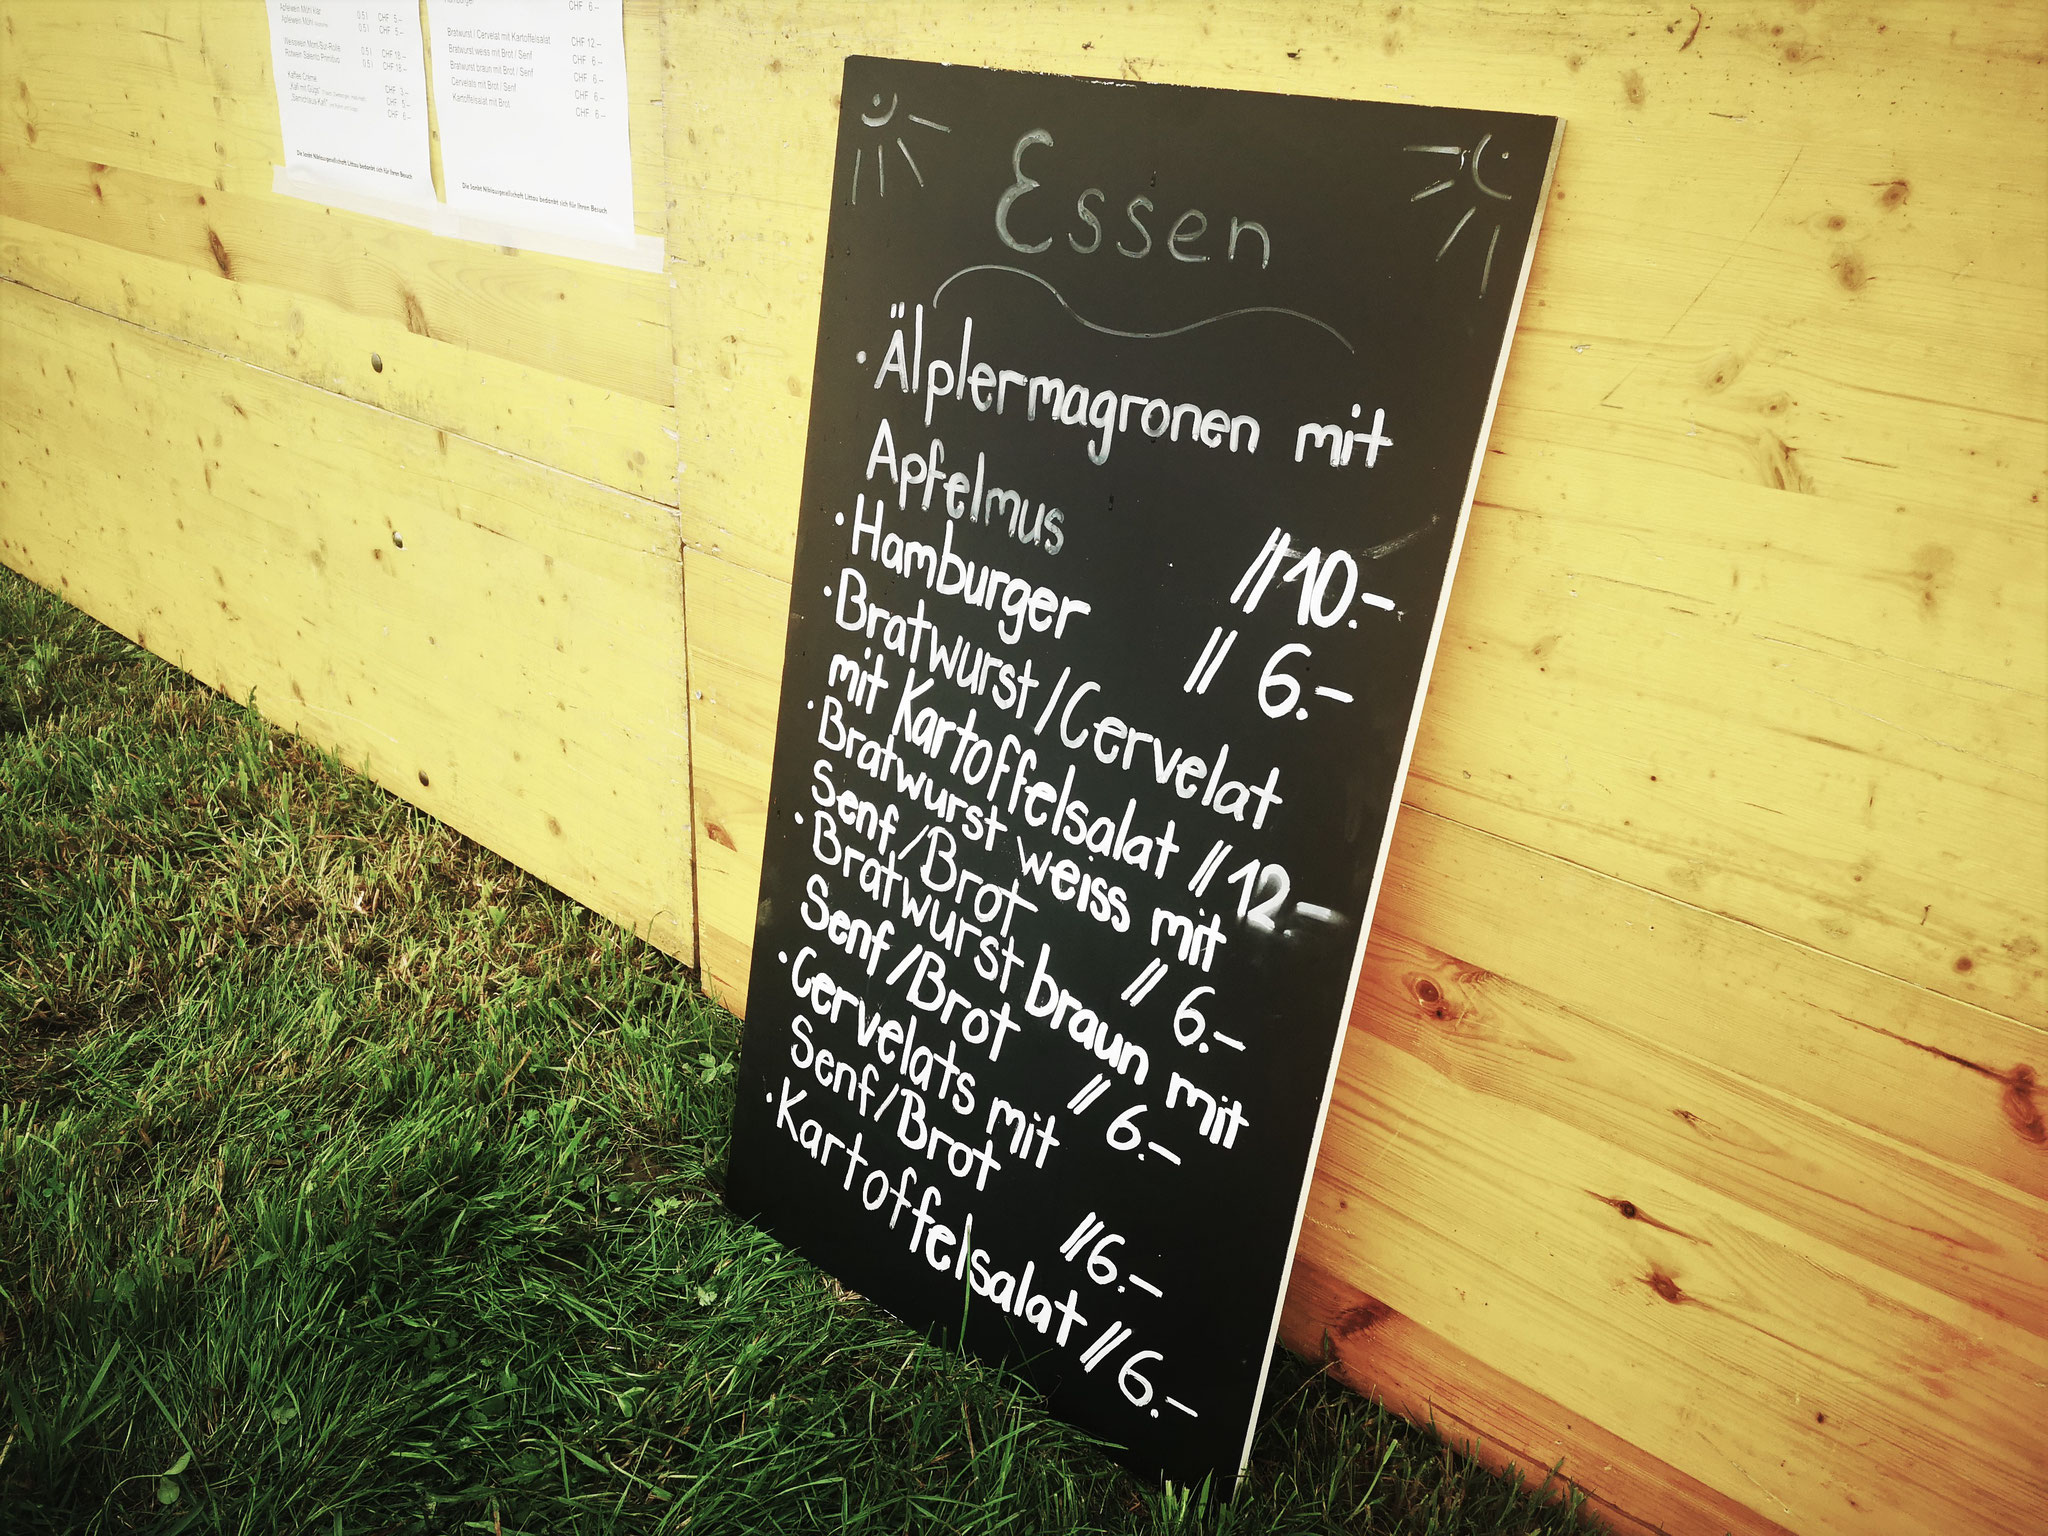 Apfelwein Möhl klar 0.5 l CHF 5.–
Apfelwein Möhl 0.5 l CHF 5.–
0.5 l CHF 18.–
0.5 l CHF 18.–
Kaffee Crème CHF 3.–
CHF 5.–
CHF 6.–
Die Sankt Niklausgesellschaft Littau bedankt sich für Ihren Besuch
Hamburger CHF 6.–
Bratwurst / Cervelat mit Kartoffelsalat CHF 12.–
Bratwurst weiss mit Brot / Senf CHF 6.–
Bratwurst braun mit Brot / Senf CHF 6.–
Cervelats mit Brot / Senf CHF 6.–
Kartoffelsalat mit Brot CHF 6.–
Die Sankt Niklausgesellschaft Littau bedankt sich für Ihren Besuch
Essen
· Älplermagronen mit
Apfelmus // 10.–
· Hamburger // 6.–
· Bratwurst / Cervelat
mit Kartoffelsalat // 12.–
· Bratwurst weiss mit
Senf / Brot // 6.–
· Bratwurst braun mit
Senf / Brot // 6.–
· Cervelats mit
Senf / Brot // 6.–
· Kartoffelsalat // 6.–